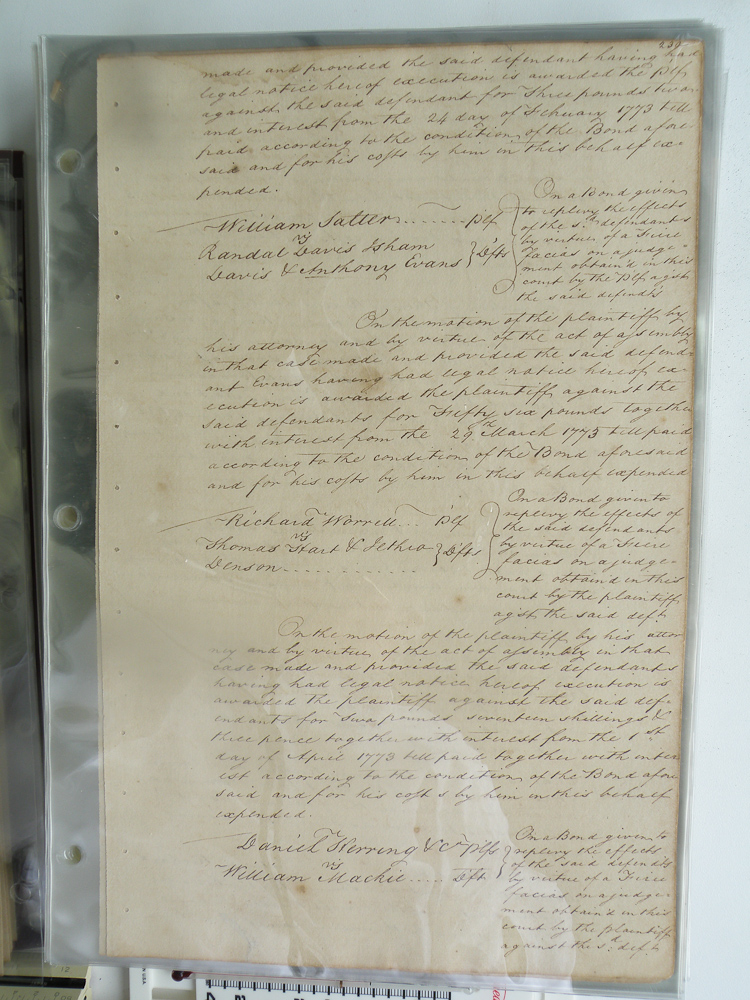 239
made and provided the said defendant having had
legal notice hereof execution is awarded the Plf
against the said defendant for Three pounds
and interest from the 24 day of Febuary 1773 till
paid according to the condition of the Bond afore
said and for his costs by him in this behalf ex=
pended.
William Salter Plf
vs
Randal Davis Isham
Davis & Anthony Evans } Dfts
On a Bond given
to replevy the effects
of the sd. defendants
by virtue of a Fiere
facias on a judge=
ment obtain'd in this
court by the Plf agst
the said defends
On the motion of the plaintiff by
his attorney and by virtue of the act of assembly
in that case made and provided the said defend=
ant Evans having had legal notice hereof ex=
ecution is awarded the plaintiff against the
said defendants for Fifty six pounds together
with interest from the 29th March 1773 till paid
according to the condition of the Bond aforesaid
and for his costs by him in this behalf expended
Richard Worrell Plf
vs
Thomas Hart & Jethro } Dfts
Denson
On a Bond given to
replevy the effects of
the said defendants
by virtue of a Fiere
facias on a judge=
ment obtain'd in this
court by the plaintiff
agst the said deft
On the motion of the plaintiff by his attor
ney and by virtue of the act of assembly in that
case made and provided the said defendants
having had legal notice hereof execution is
awarded the plaintiff against the said def=
endants for two pounds seventeen shillings &
three pence together with interest from the 1st
day of April 1773 till paid together with inter
est according to the condition of the Bond afore
said and for his costs by him in this behalf
expended.
Daniel Herring & Co Plfs
vs
William Mackie Dft
On a Bond given to
replevy the effects
of the said defendts
by virtue of a Fiere
facias on a judge=
ment obtain'd in this
court by the plaintiff
against the sd. deft